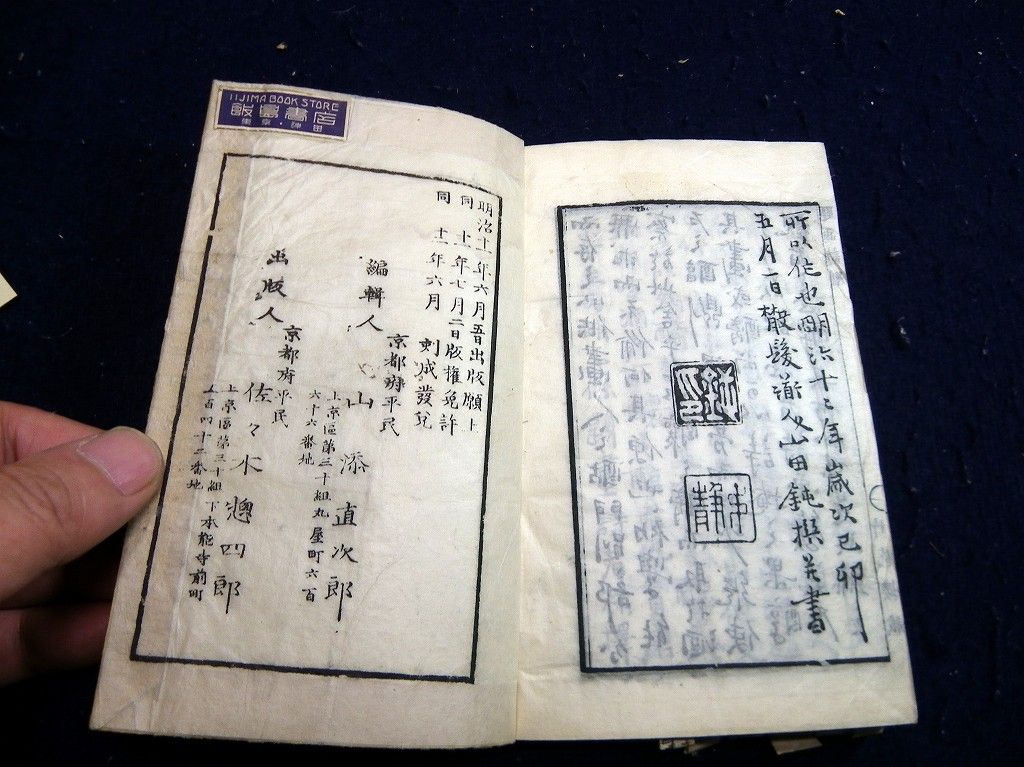 所以作也明治十二年歳次己卯
五月一日
山田鈍撰并書
明治十一年六月五日出版願上
同 十一年七月二日版權免許
同 十二年六月 刻成發兌
編輯人
京都府平民
山添直次郎
上京區第三十組丸屋町六百
六十六番地
出版人
京都府平民
佐々木惣四郎
上京區第三十組下本能寺前町
上百四十二番地
IIJIMA BOOK STORE
飯島書店
東京・神田